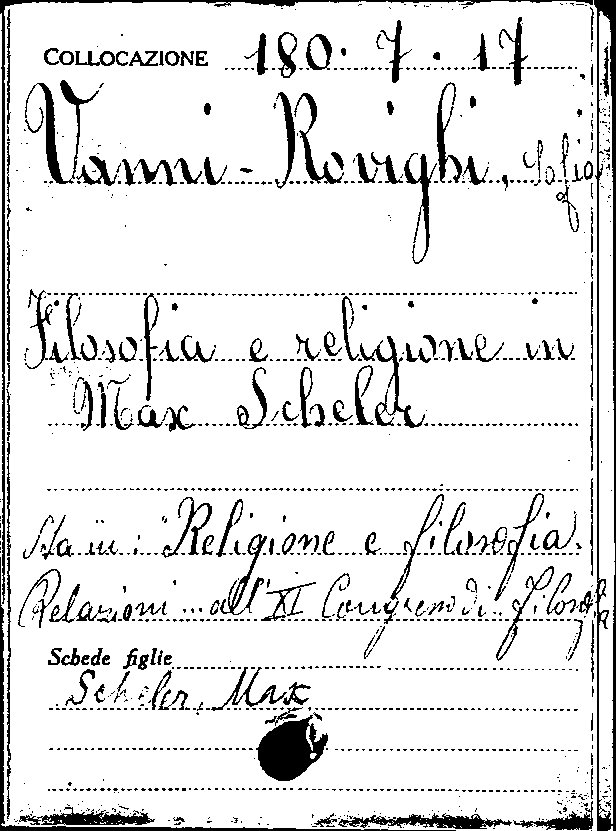 COLLOCAZIONE 180. 7. 17
Vanni - Rovighi, Sofia
Filosofia e religione in
Max Scheler
Sta in: "Religione e filosofia.
Relazioni ... all'XI Congresso di filosofia
Schede figlie
Scheler, Max